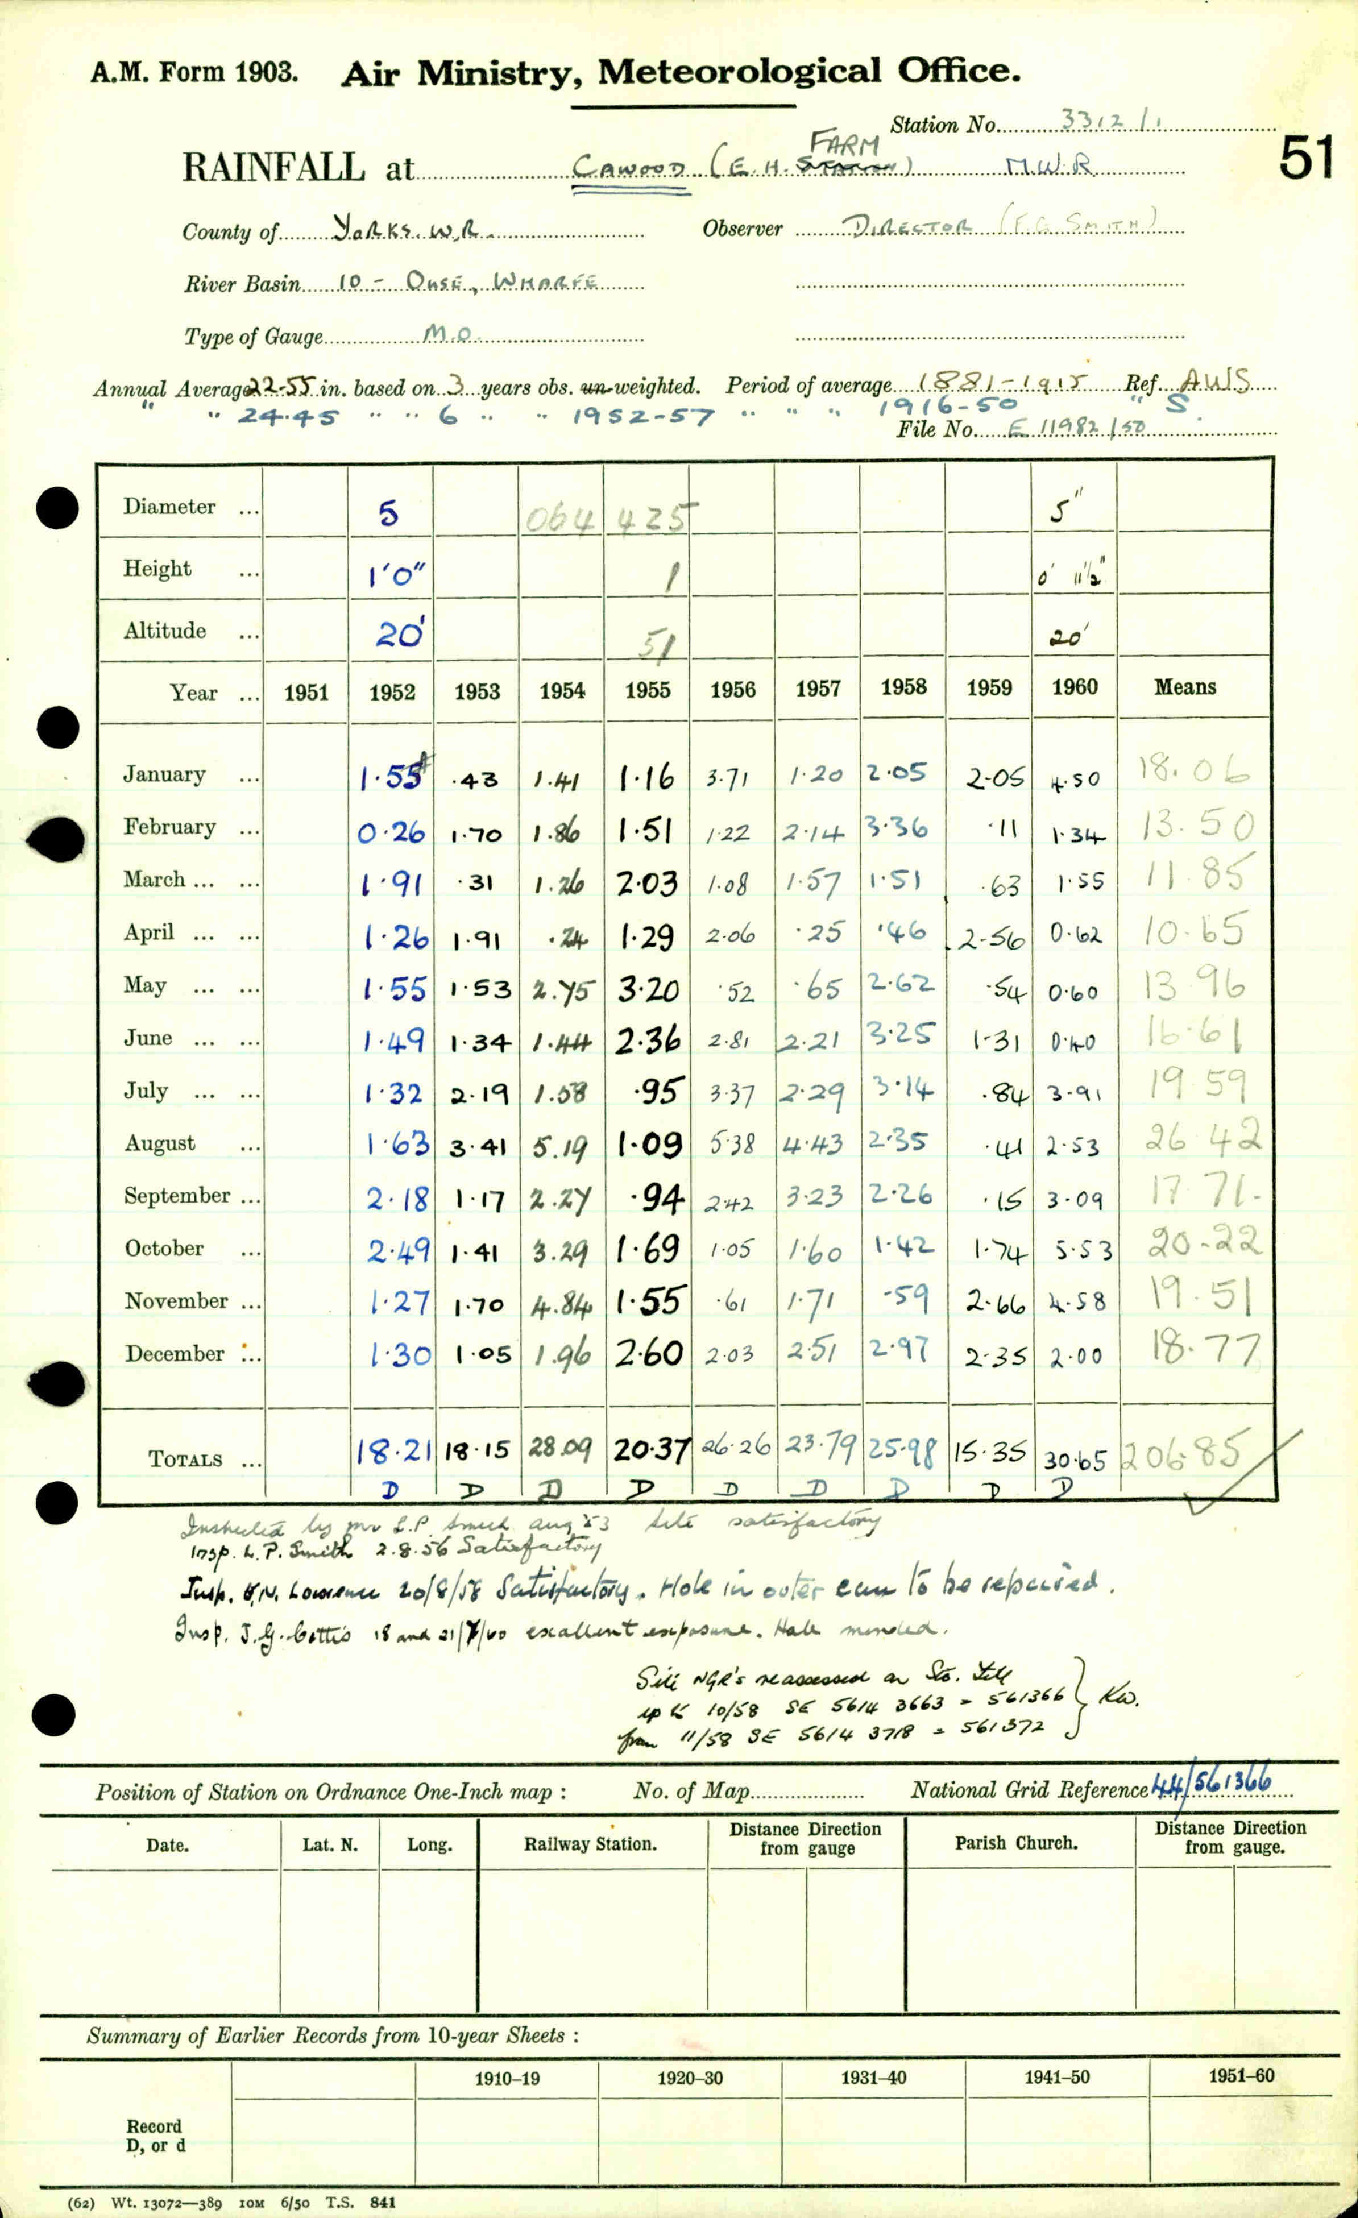 A.M. Form 1903. Air Ministry, Meteorological Office.
Station No. 3312/1
51
RAINFALL at CAWOOD (E.H. STATION) FARM M.W.R.
County of YORKS. W.R. Observer DIRECTOR (F.G. SMITH)
River Basin 10 - OUSE, WHARFE
Type of Gauge M.O.
Annual Average 22.55 in. based on 3 years obs. un-weighted. Period of average 1881-1915 Ref. AWS
" " 24.45 " " 6 " " 1952-57 " " " 1916-50 " S.
File No. E 11982/50
Diameter ... 5 064 425 5"
Height ... 1'0" 1 0' 11½"
Altitude ... 20' 51 20'
Year ... 1951 1952 1953 1954 1955 1956 1957 1958 1959 1960 Means
January ... 1.55 .43 1.41 1.16 3.71 1.20 2.05 2.05 4.50 18.06
February ... 0.26 1.70 1.86 1.51 1.22 2.14 3.36 .11 1.34 13.50
March ... ... 1.91 .31 1.26 2.03 1.08 1.57 1.51 .63 1.55 11.85
April ... ... 1.26 1.91 .24 1.29 2.06 .25 .46 2.56 0.62 10.65
May ... ... 1.55 1.53 2.75 3.20 .52 .65 2.62 .54 0.60 13.96
June ... ... 1.49 1.34 1.44 2.36 2.81 2.21 3.25 1.31 0.40 16.61
July ... ... 1.32 2.19 1.58 .95 3.37 2.29 3.14 .84 3.91 19.59
August ... 1.63 3.41 5.19 1.09 5.38 4.43 2.35 .41 2.53 26.42
September ... 2.18 1.17 2.27 .94 2.42 3.23 2.26 .15 3.09 17.71
October ... 2.49 1.41 3.29 1.69 1.05 1.60 1.42 1.74 5.53 20.22
November ... 1.27 1.70 4.84 1.55 .61 1.71 .59 2.66 4.58 19.51
December ... 1.30 1.05 1.96 2.60 2.03 2.51 2.97 2.35 2.00 18.77
TOTALS ... 18.21 18.15 28.09 20.37 26.26 23.79 25.98 15.35 30.65 206.85
D D D D D D D D D
Inspected by Mr L.P. Smith Aug 53 site satisfactory
Insp. L.P. Smith 2.8.56 Satisfactory
Insp. Lawrence 20/8/58 Satisfactory. Hole in outer can to be repaired.
Insp. J.G. Cottis 18 and 21/7/60 excellent exposure. Hole mended.
Site NGR's reassessed on Stn. file
up to 10/58 SE 5614 3663 = 561366
from 11/58 SE 5614 3718 = 561372
Position of Station on Ordnance One-Inch map : No. of Map National Grid Reference 44/561366
Date. Lat. N. Long. Railway Station. Distance Direction from gauge Parish Church. Distance Direction from gauge.
Summary of Earlier Records from 10-year Sheets :
1910–19 1920–30 1931–40 1941–50 1951–60
Record
D, or d
(62) Wt. 13072—389 10M 6/50 T.S. 841